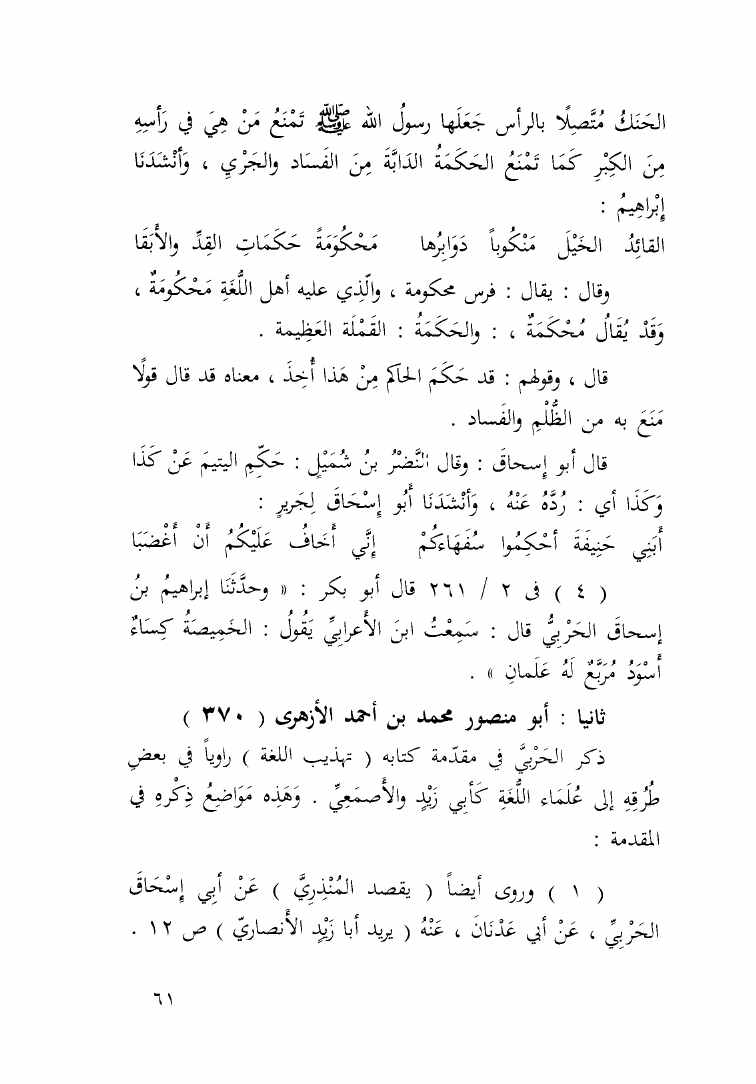 الحَنَكُ مُتَّصِلًا بالرأس جَعَلَها رسولُ الله ﷺ تَمْنَعُ مَنْ هِيَ في رَأسِهِ
مِنَ الكِبْرِ كَمَا تَمْنَعُ الحَكَمَةُ الدَابَّةَ مِنَ الفَسَاد والجَرْيِ ، وَأنْشَدَنَا
إِبْراهِيمُ :
القائِدُ الخَيْلَ مَنْكُوباً دَوَابِرُها مَحْكُوَمَةً حَكَمَاتِ القِدِّ والأَبَقَا
وقال : يقال : فرس محكومة ، والّذِي عليه أهل اللُّغَةِ مَحْكُومَةٌ ،
وَقَدْ يُقَالُ مُحْكَمَةٌ ، : والحَكَمَةُ : القَمْلَة العَظِيمة .
قال ، وقولهم : قد حَكَمَ الحاكم مِنْ هَذا أُخِذَ ، معناه قد قال قولًا
مَنَعَ به من الظُّلْمِ والفَساد .
قال أبو إسحاقَ : وقال النَّضْرُ بنُ شُمَيْلٍ : حَكِّمِ اليتيمَ عَنْ كَذَا
وَكَذَا أي : رُدَّهُ عَنْهُ ، وَأنْشَدَنَا أَبُو إِسْحَاقَ لِجَريرٍ :
أَبَنِي حَنِيفَةَ أحْكِمُوا سُفَهَاءَكُمْ إِنَّي أَخَافُ عَلَيْكُمُ أَنْ أَغْضَبَا
( ٤ ) فى ٢ / ٢٦١ قال أبو بكر : « وحدَّثَنَا إبراهيمُ بنُ
إسحاقَ الحَرْبِيُّ قال : سَمِعْتُ ابنَ الأَعرابِيِّ يَقُولُ : الخَمِيصَةُ كِسَاءٌ
أَسْوَدُ مُرَبَّعٌ لَهُ عَلَمانِ » .
ثانيا : أبو منصور محمد بن أحمد الأزهرى ( ٣٧٠ )
ذكر الحَرْبيَّ في مقدّمة كتابه ( تهذيب اللغة ) راوياً في بعضِ
طُرُقِهِ إلى عُلَمَاء اللُّغَةِ كَأبي زَيْدٍ والأَصمَعِيِّ . وَهَذِه مَوَاضِعُ ذِكْرهِ في
المقدمة :
( ١ ) وروى أيضاً ( يقصد المُنْذِرِيَّ ) عَنْ أبِي إِسْحَاقَ
الحَرْبِيِّ ، عَنْ أبي عَدْنَانَ ، عَنْهُ ( يريد أبا زَيْدٍ الأَنصاريّ ) ص ١٢ .
٦١